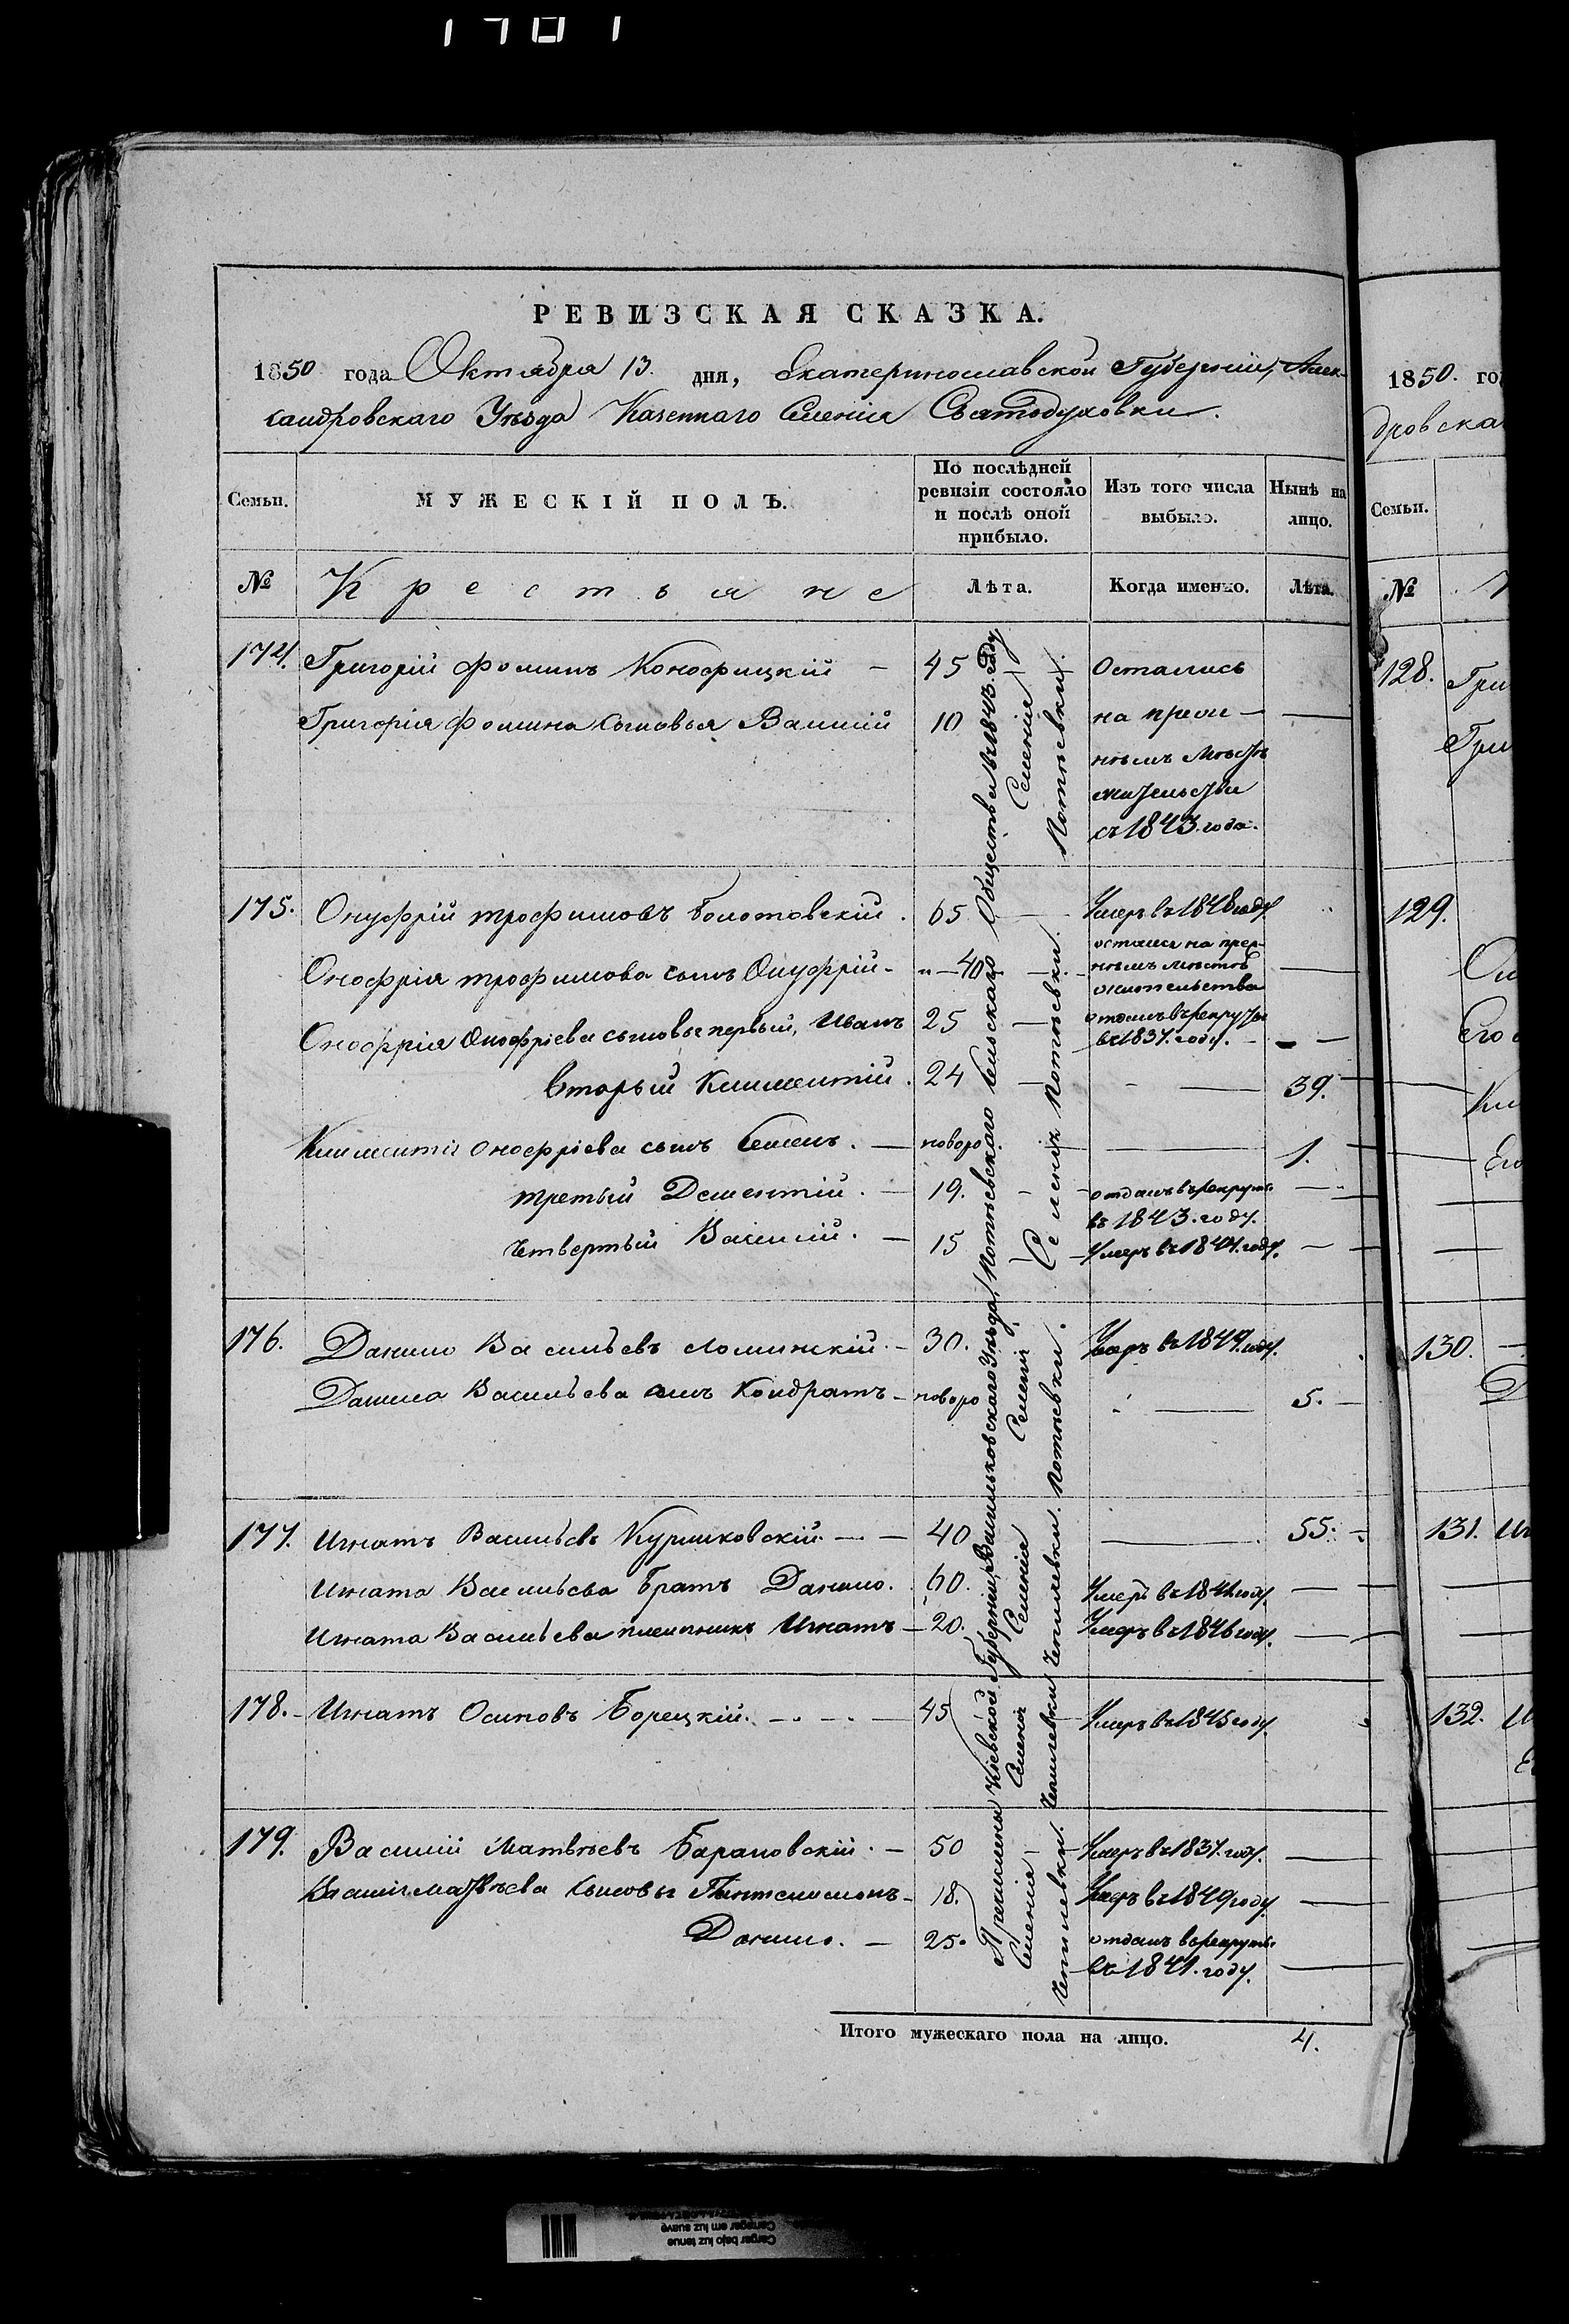 1781
РЕВИЗСКАЯ СКАЗКА.
1850 года Октября 13. дня, Екатеринославской Губерніи, Алек-
сандровскаго Уѣзда Казеннаго Селенія Святодуховки.
Семьи.
МУЖЕСКІЙ ПОЛЪ.
По послѣдней ревизіи состояло и послѣ оной прибыло.
Изъ того числа выбыло.
Нынѣ на лицо.
№
Крестьяне
Лѣта.
Когда именно.
Лѣта.
174. Григорій Фоминъ Конофицкій — 45 Остались
Григорія Фомина сыновья Василій 10 на преж- —
немъ мѣстѣ
жительства
съ 1843. года.
175. Онуфрій Трофимовъ Болотовскій. 65 — Умеръ въ 1848 году.
Онофрія Трофимова сынъ Онуфрій - " — 40 остался на преж-
немъ мѣстѣ —
жительства
Онофрія Онофріева сыновья первый, Иванъ 25 — отданъ въ рекруты
въ 1837. году. — —
вторый Климентій. 24 — — 39.
Климентія Онофріева сынъ Семенъ. — новоро — 1.
третый Дементій. — 19. отданъ въ рекруты
въ 1843. году.
четвертый Василій. — 15 Умеръ въ 1844. году. —
176. Данило Васильевъ Ломинскій. — 30. Умеръ въ 1849. году.
Данила Васильева сынъ Кондратъ — новоро — 5. —
177. Игнатъ Васильевъ Куршковскій. — — 40 — 55.
Игната Васильева братъ Данило. 60. Умеръ въ 1841 году. —
Игната Васильева племяникъ Игнатъ — 20. Умеръ въ 1846 году. —
178. Игнатъ Осиповъ Борецкій. — 45 Умеръ въ 1845 году.
179. Василій Матвѣевъ Барановскій. — 50 Умеръ въ 1837. году. —
Василія Матвѣева сыновья Пантелимонъ — 18. Умеръ въ 1849 году. —
Данило. — 25. отданъ въ рекруты
въ 1841. году. —
Кіевской Губерніи, Васильковскаго Уѣзда, Потіевскаго Сельскаго Общества въ 1843. году
Селенія Селенія Селенія Селеній Селенія
Чепилевки. Чепилевки Чепилевки. Потіевки. Селенія Потіевки. Потіевки.
Итого мужескаго пола на лицо. 4.
1850. го
дровска
Семьи.
№
128. Гри
Гри
129.
Он
Его
Кли
Его
130. —
Д
131. Иг
132. И
Cargar bajo luz tenue
Carregar em luz suave